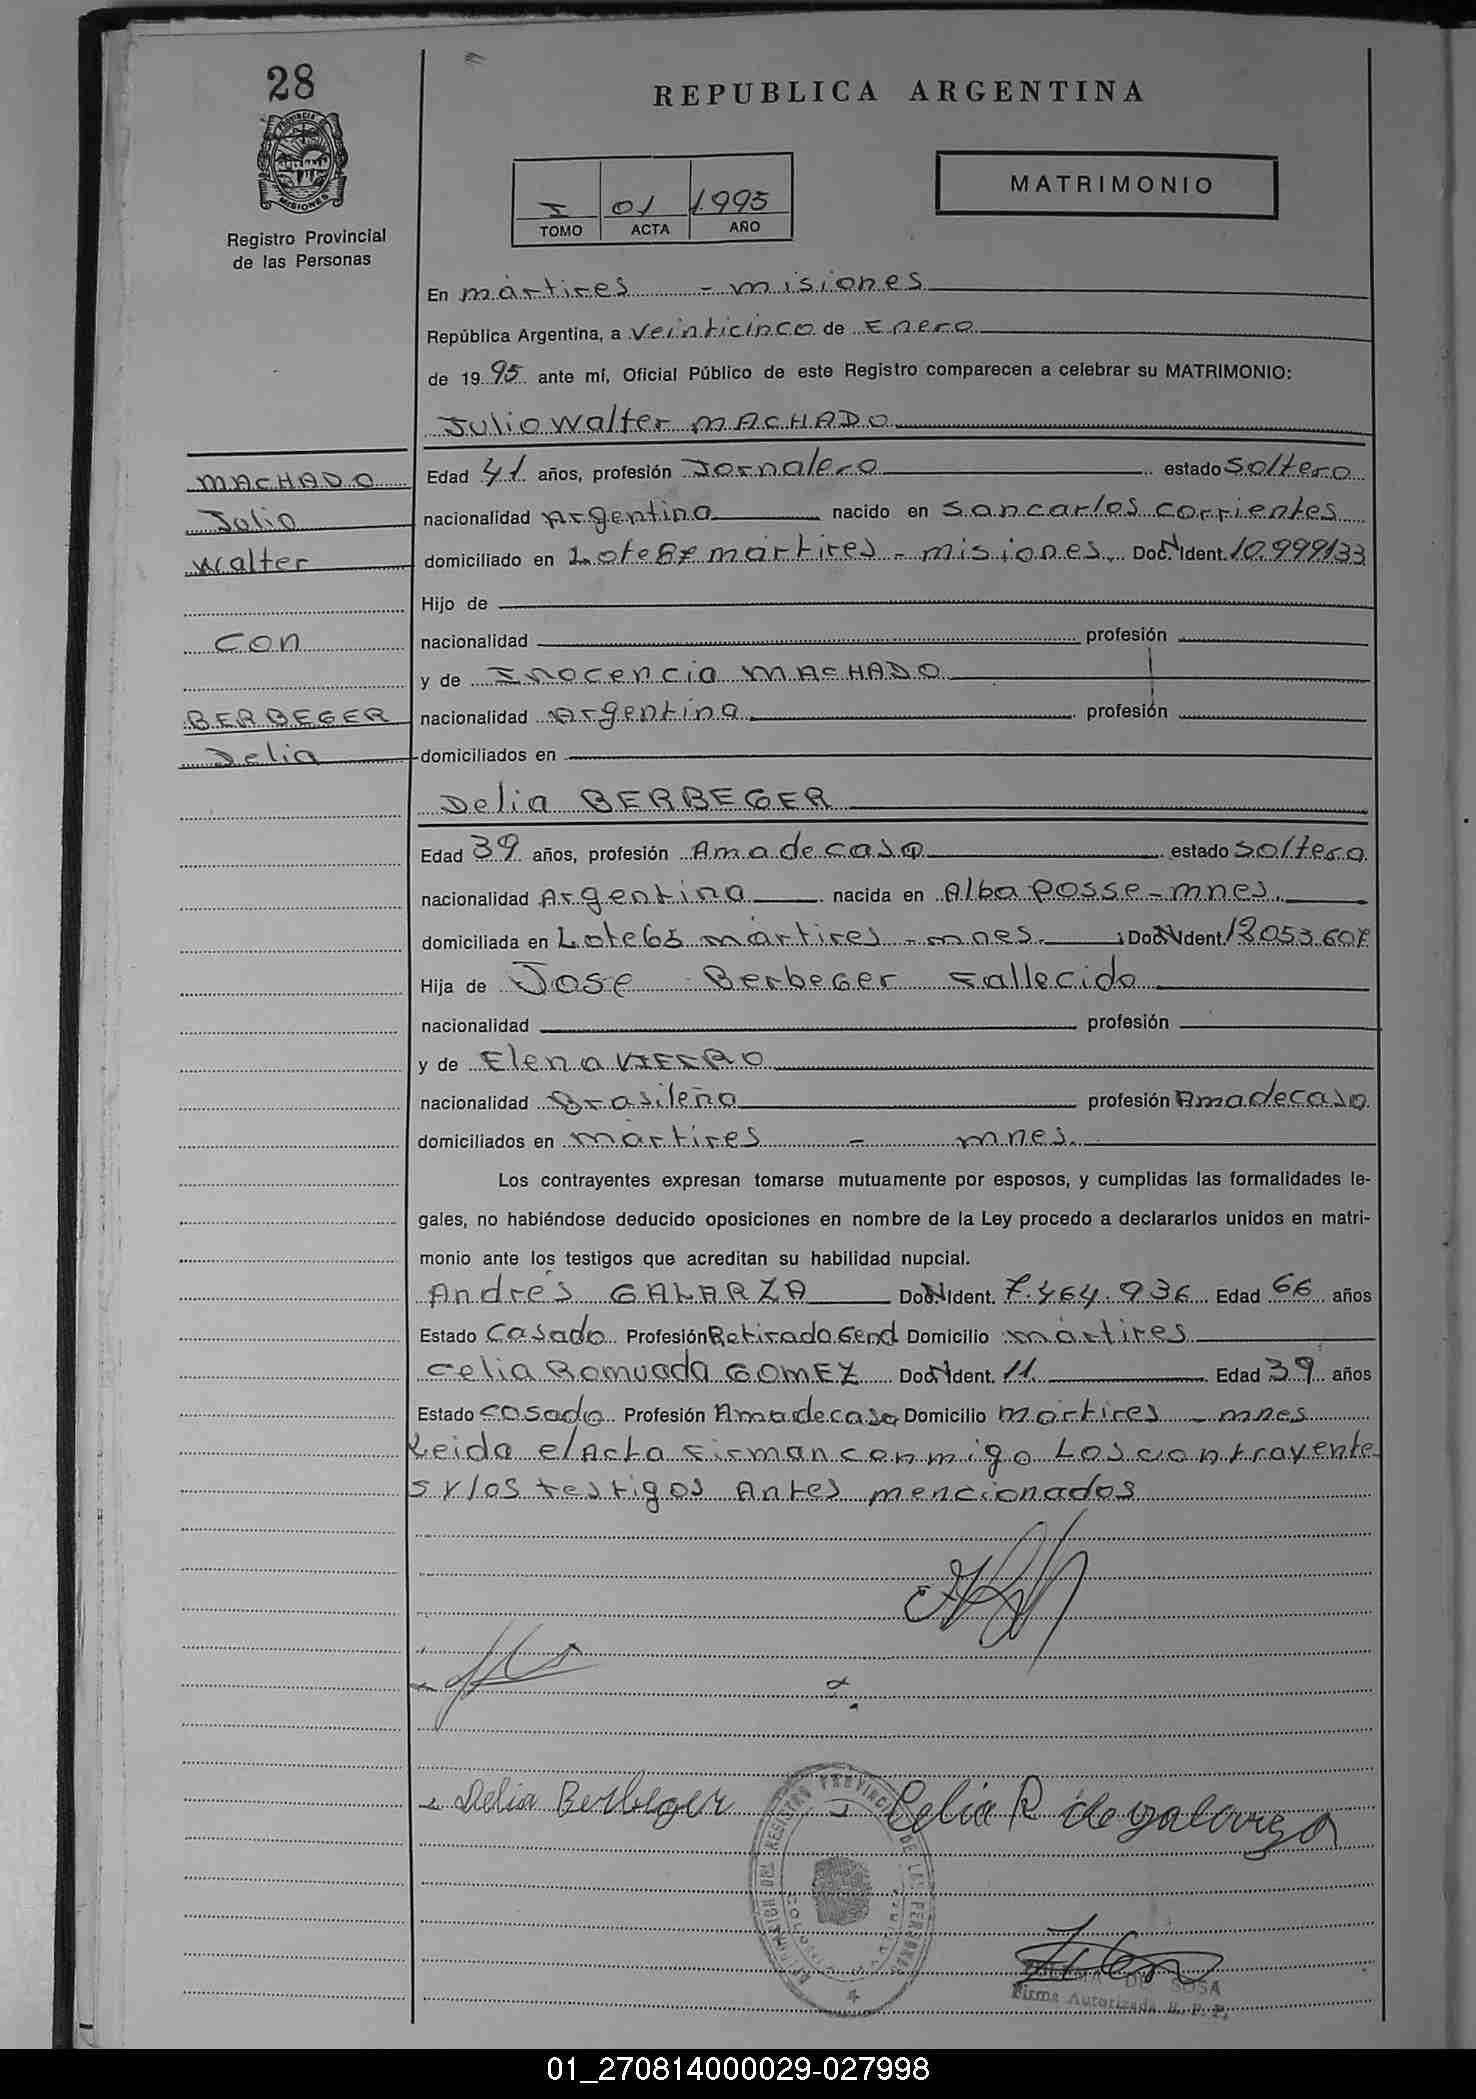 28
REPUBLICA ARGENTINA
PROVINCIA DE
MISIONES
Registro Provincial
de las Personas
I 01 1995
TOMO ACTA AÑO
MATRIMONIO
En mártires - misiones
República Argentina, a veinticinco de Enero
de 1995 ante mí, Oficial Público de este Registro comparecen a celebrar su MATRIMONIO:
Julio Walter MACHADO
MACHADO
Julio
Walter
con
BERBEGER
Delia
Edad 41 años, profesión Jornalero estado soltero
nacionalidad Argentina nacido en San carlos corrientes
domiciliado en Lote 87 mártires - misiones. Doc. N Ident. 10.999133
Hijo de
nacionalidad profesión
y de Inocencia MACHADO
nacionalidad Argentina profesión
domiciliados en
Delia BERBEGER
Edad 39 años, profesión Ama de casa estado soltera
nacionalidad Argentina nacida en Alba posse - mnes.
domiciliada en Lote 65 mártires - mnes. Doc. N Ident. 12.053.607
Hija de Jose Berbeger Fallecido
nacionalidad profesión
y de Elena
nacionalidad Brasileña profesión Ama de casa
domiciliados en martires - mnes.
Los contrayentes expresan tomarse mutuamente por esposos, y cumplidas las formalidades le-
gales, no habiéndose deducido oposiciones en nombre de la Ley procedo a declararlos unidos en matri-
monio ante los testigos que acreditan su habilidad nupcial.
Andrés GALARZA Doc. N Ident. 7.464.936 Edad 66 años
Estado Casado Profesión Retirado Gend Domicilio mártires
Celia Romuada GOMEZ Doc. N Ident. 11. Edad 39 años
Estado casada Profesión Ama de casa Domicilio mártires - mnes
Leida el Acta Firman conmigo Los contrayente
s y los testigos Antes mencionados
Delia Berbeger
Celia R de galarza
DEL REGISTRO PROVINCIAL DE LAS PERSONAS
DE SOSA
Firma Autorizada R. P. P.
01_270814000029-027998